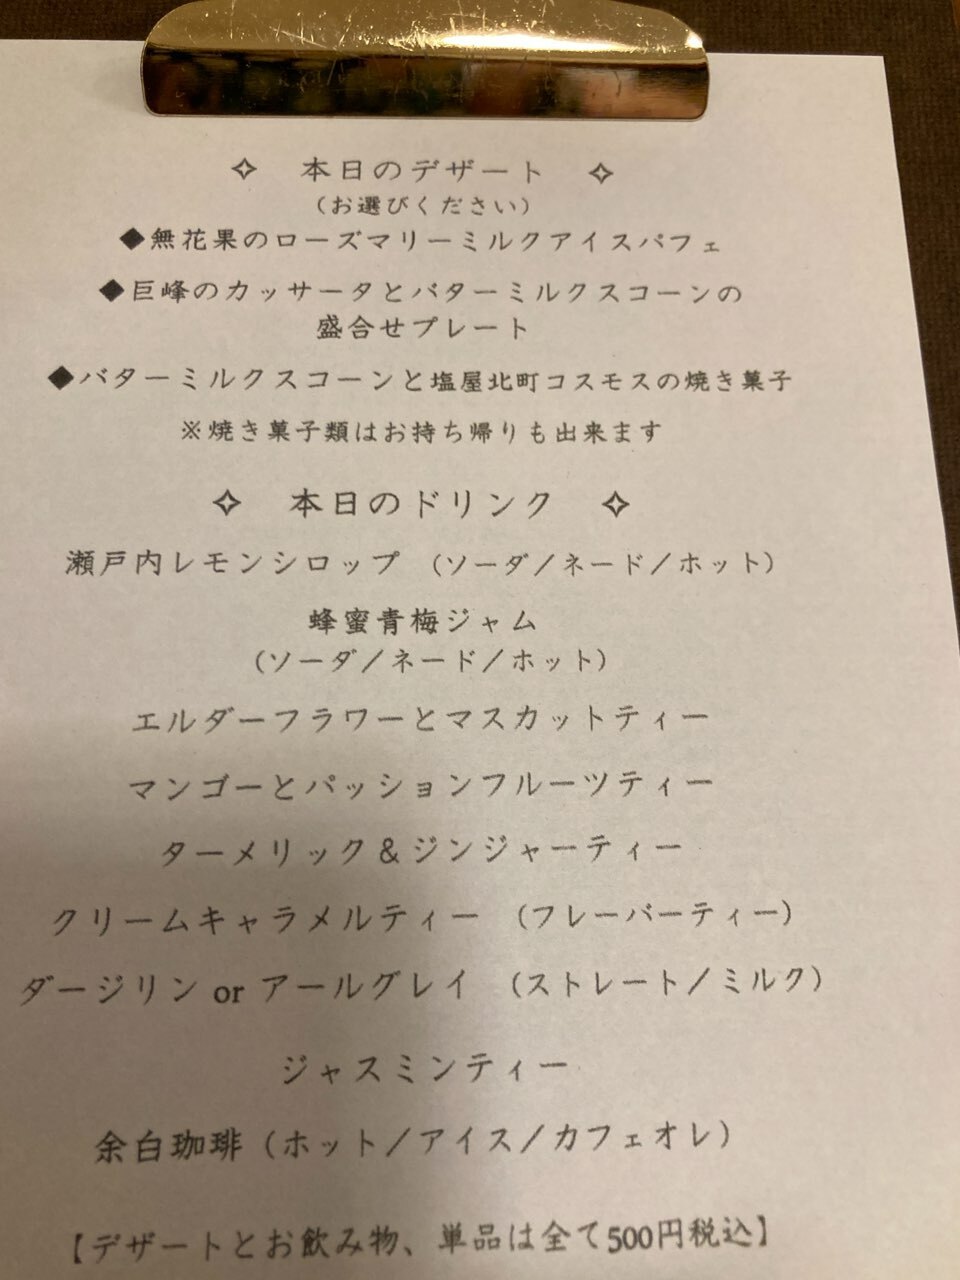 ✧ 本日のデザート ✧
(お選びください)
◆無花果のローズマリーミルクアイスパフェ
◆巨峰のカッサータとバターミルクスコーンの
盛合せプレート
◆バターミルクスコーンと塩屋北町コスモスの焼き菓子
※焼き菓子類はお持ち帰りも出来ます
✧ 本日のドリンク ✧
瀬戸内レモンシロップ (ソーダ/ネード/ホット)
蜂蜜青梅ジャム
(ソーダ/ネード/ホット)
エルダーフラワーとマスカットティー
マンゴーとパッションフルーツティー
ターメリック&ジンジャーティー
クリームキャラメルティー (フレーバーティー)
ダージリン or アールグレイ (ストレート/ミルク)
ジャスミンティー
余白珈琲(ホット/アイス/カフェオレ)
【デザートとお飲み物、単品は全て500円税込】